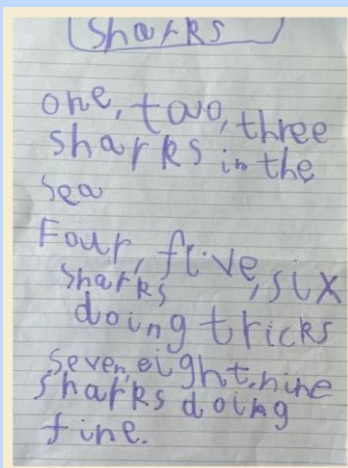 Sharks
one, two, three
sharks in the
sea
Four, five, six
sharks
doing tricks
seven, eight, nine
sharks doing
fine.